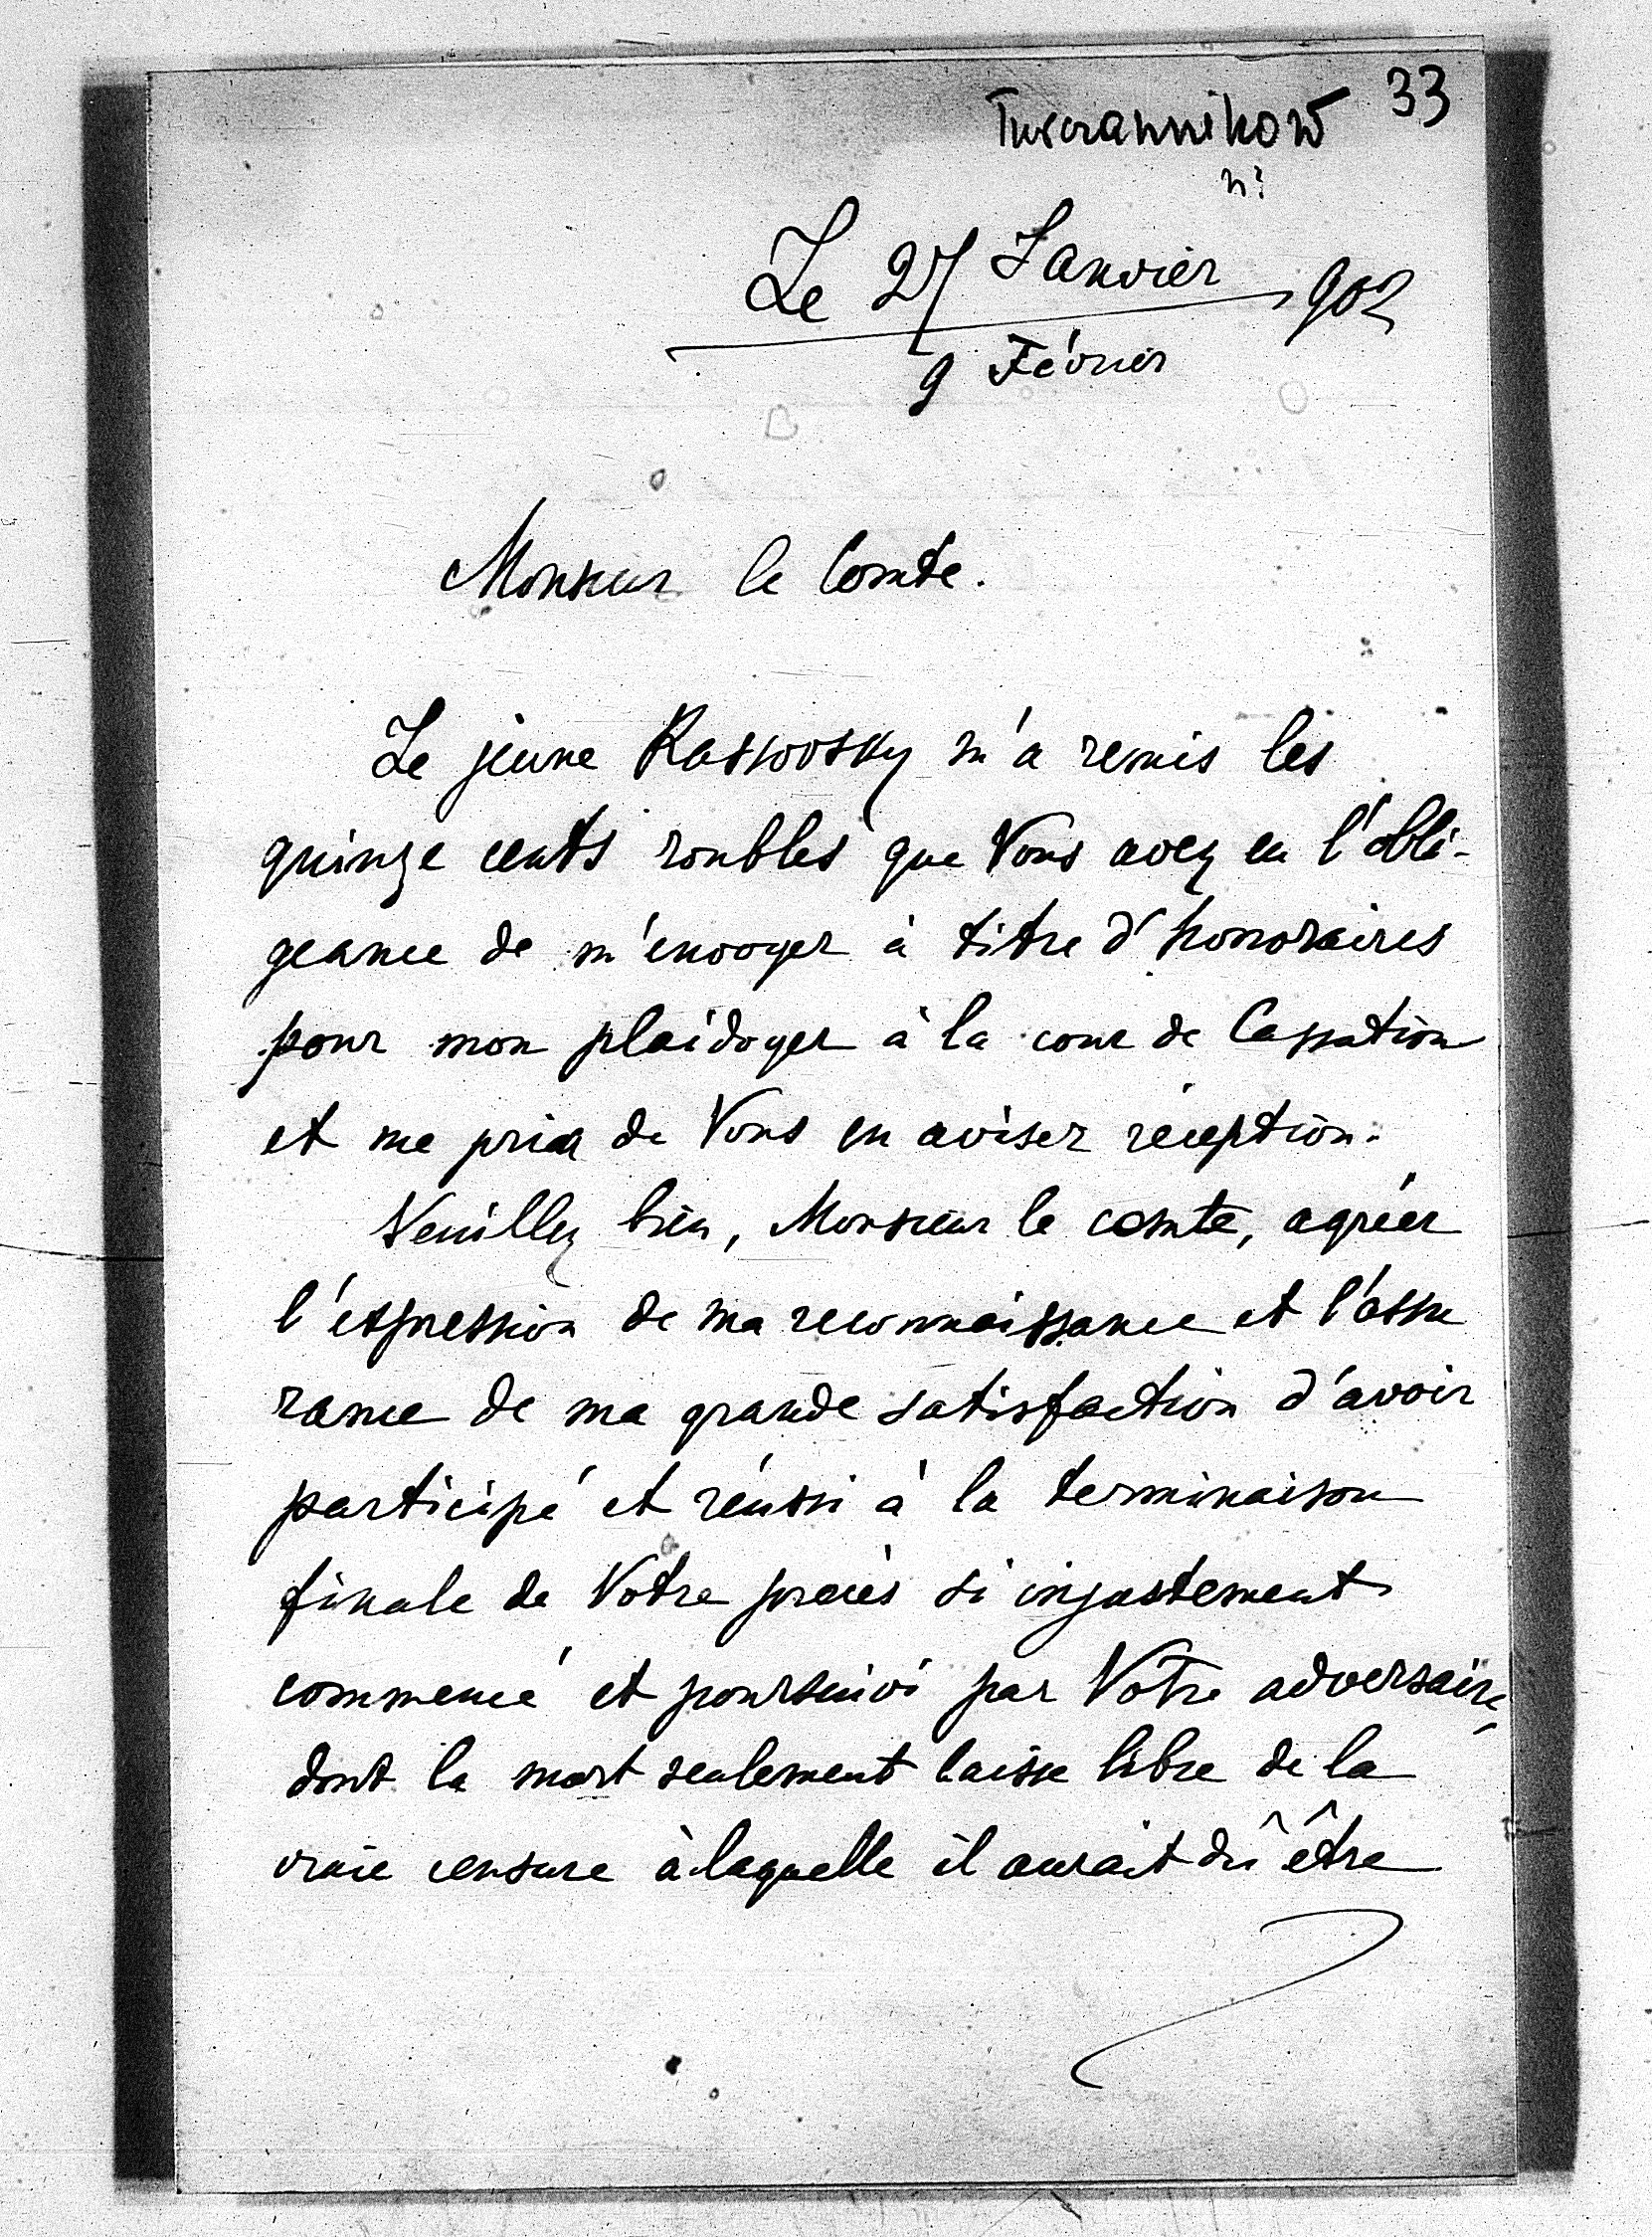 33
n?
Le 27 Janvier 902
9 Février
Monsieur le Comte.
Le jeune m'a remis les
quinze cents roubles que Vous avez eu l'obli-
geance de m'envoyer à titre d'honoraires
pour mon plaidoyer à la cour de Cassation
et me pria de Vous en aviser réception.
Veuillez bien, Monsieur le comte, agréer
l'expression de ma reconnaissance et l'assu
rance de ma grande satisfaction d'avoir
participé et réussi à la terminaison
finale de Votre procès si injustement
commencé et poursuivi par Votre adversaire,
dont la mort seulement laisse libre de la
vraie censure à laquelle il aurait dû être